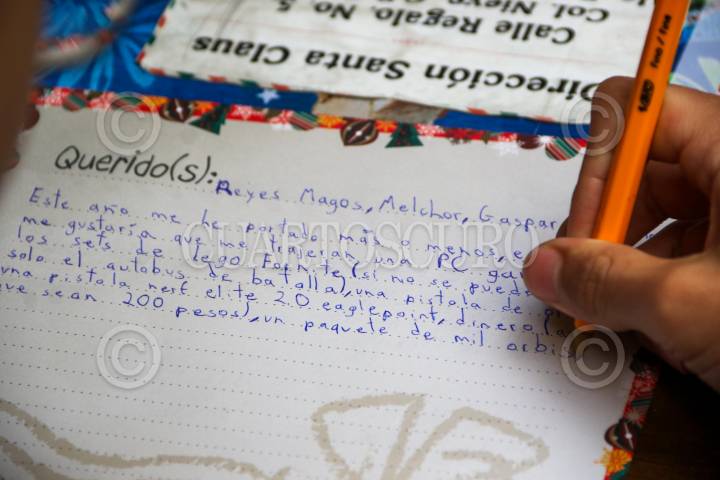 Dirección Santa Claus
Calle Regalo. No 5,
Col. Nieve
Querido(s): Reyes Magos, Melchor, Gaspar
Este año me he portado más o menos,
me gustaría que me trajeran una PC
los sets de lego Fortnite (si no se
solo el autobus de batalla), una pistola de
una pistola nerf elite 2.0 eaglepoint, dinero
que sean 200 pesos), un paquete de mil orbis
CUARTOSCURO